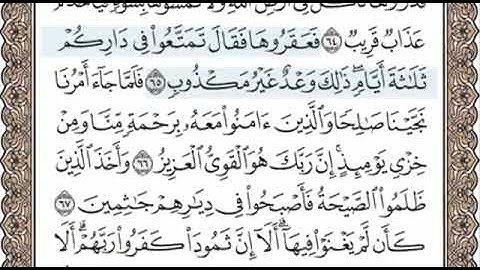 عَذَابٌ قَرِيبٌ ٦٤ فَعَقَرُوهَا فَقَالَ تَمَتَّعُوا۟ فِى دَارِكُمْ
ثَلَـٰثَةَ أَيَّامٍ ۖ ذَٰلِكَ وَعْدٌ غَيْرُ مَكْذُوبٍ ٦٥ فَلَمَّا جَآءَ أَمْرُنَا
نَجَّيْنَا صَـٰلِحًا وَٱلَّذِينَ ءَامَنُوا۟ مَعَهُۥ بِرَحْمَةٍ مِّنَّا وَمِنْ
خِزْىِ يَوْمِئِذٍ ۗ إِنَّ رَبَّكَ هُوَ ٱلْقَوِىُّ ٱلْعَزِيزُ ٦٦ وَأَخَذَ ٱلَّذِينَ
ظَلَمُوا۟ ٱلصَّيْحَةُ فَأَصْبَحُوا۟ فِى دِيَـٰرِهِمْ جَـٰثِمِينَ ٦٧
كَأَن لَّمْ يَغْنَوْا۟ فِيهَآ ۗ أَلَآ إِنَّ ثَمُودَا۟ كَفَرُوا۟ رَبَّهُمْ ۗ أَلَا